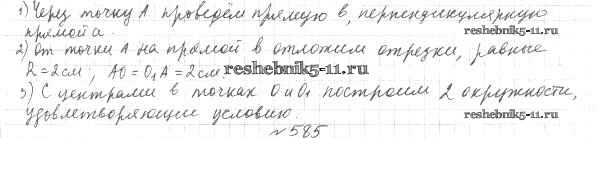 1) Через точку А проведём прямую в, перпендикулярную
reshebnik5-11.ru
прямой а.
2) От точки А на прямой в отложим отрезки, равные
R = 2 см; AO = O₁A = 2 см
reshebnik5-11.ru
3) С центрами в точках O и O₁ построим 2 окружности,
удовлетворяющие условию.
reshebnik5-11.ru
№585